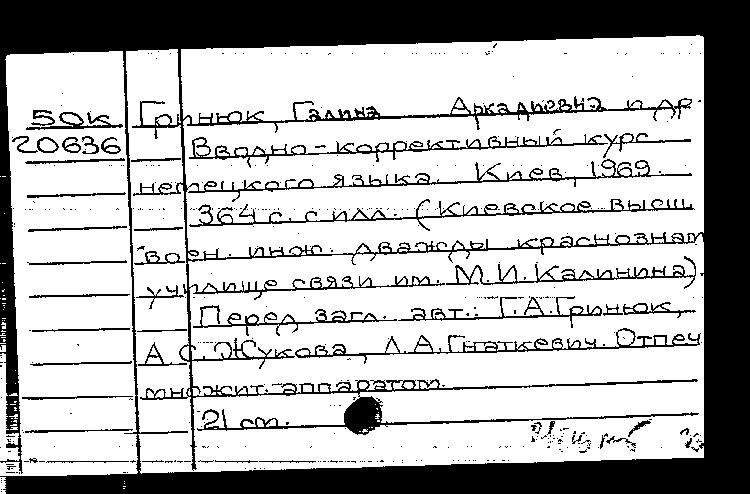 50К Гринюк, Галина Аркадиевна и др.
20636 Вводно-коррективный курс
немецкого языка. Киев, 1969.
364 с. с илл. (Киевское высш
воен. инж. дважды краснознам
училище связи им. М.И. Калинина).
Перед загл. авт.: Г.А. Гринюк,
А.С. Жукова, Л.А. Гнаткевич. Отпеч
множит. аппаратом.
21 см.